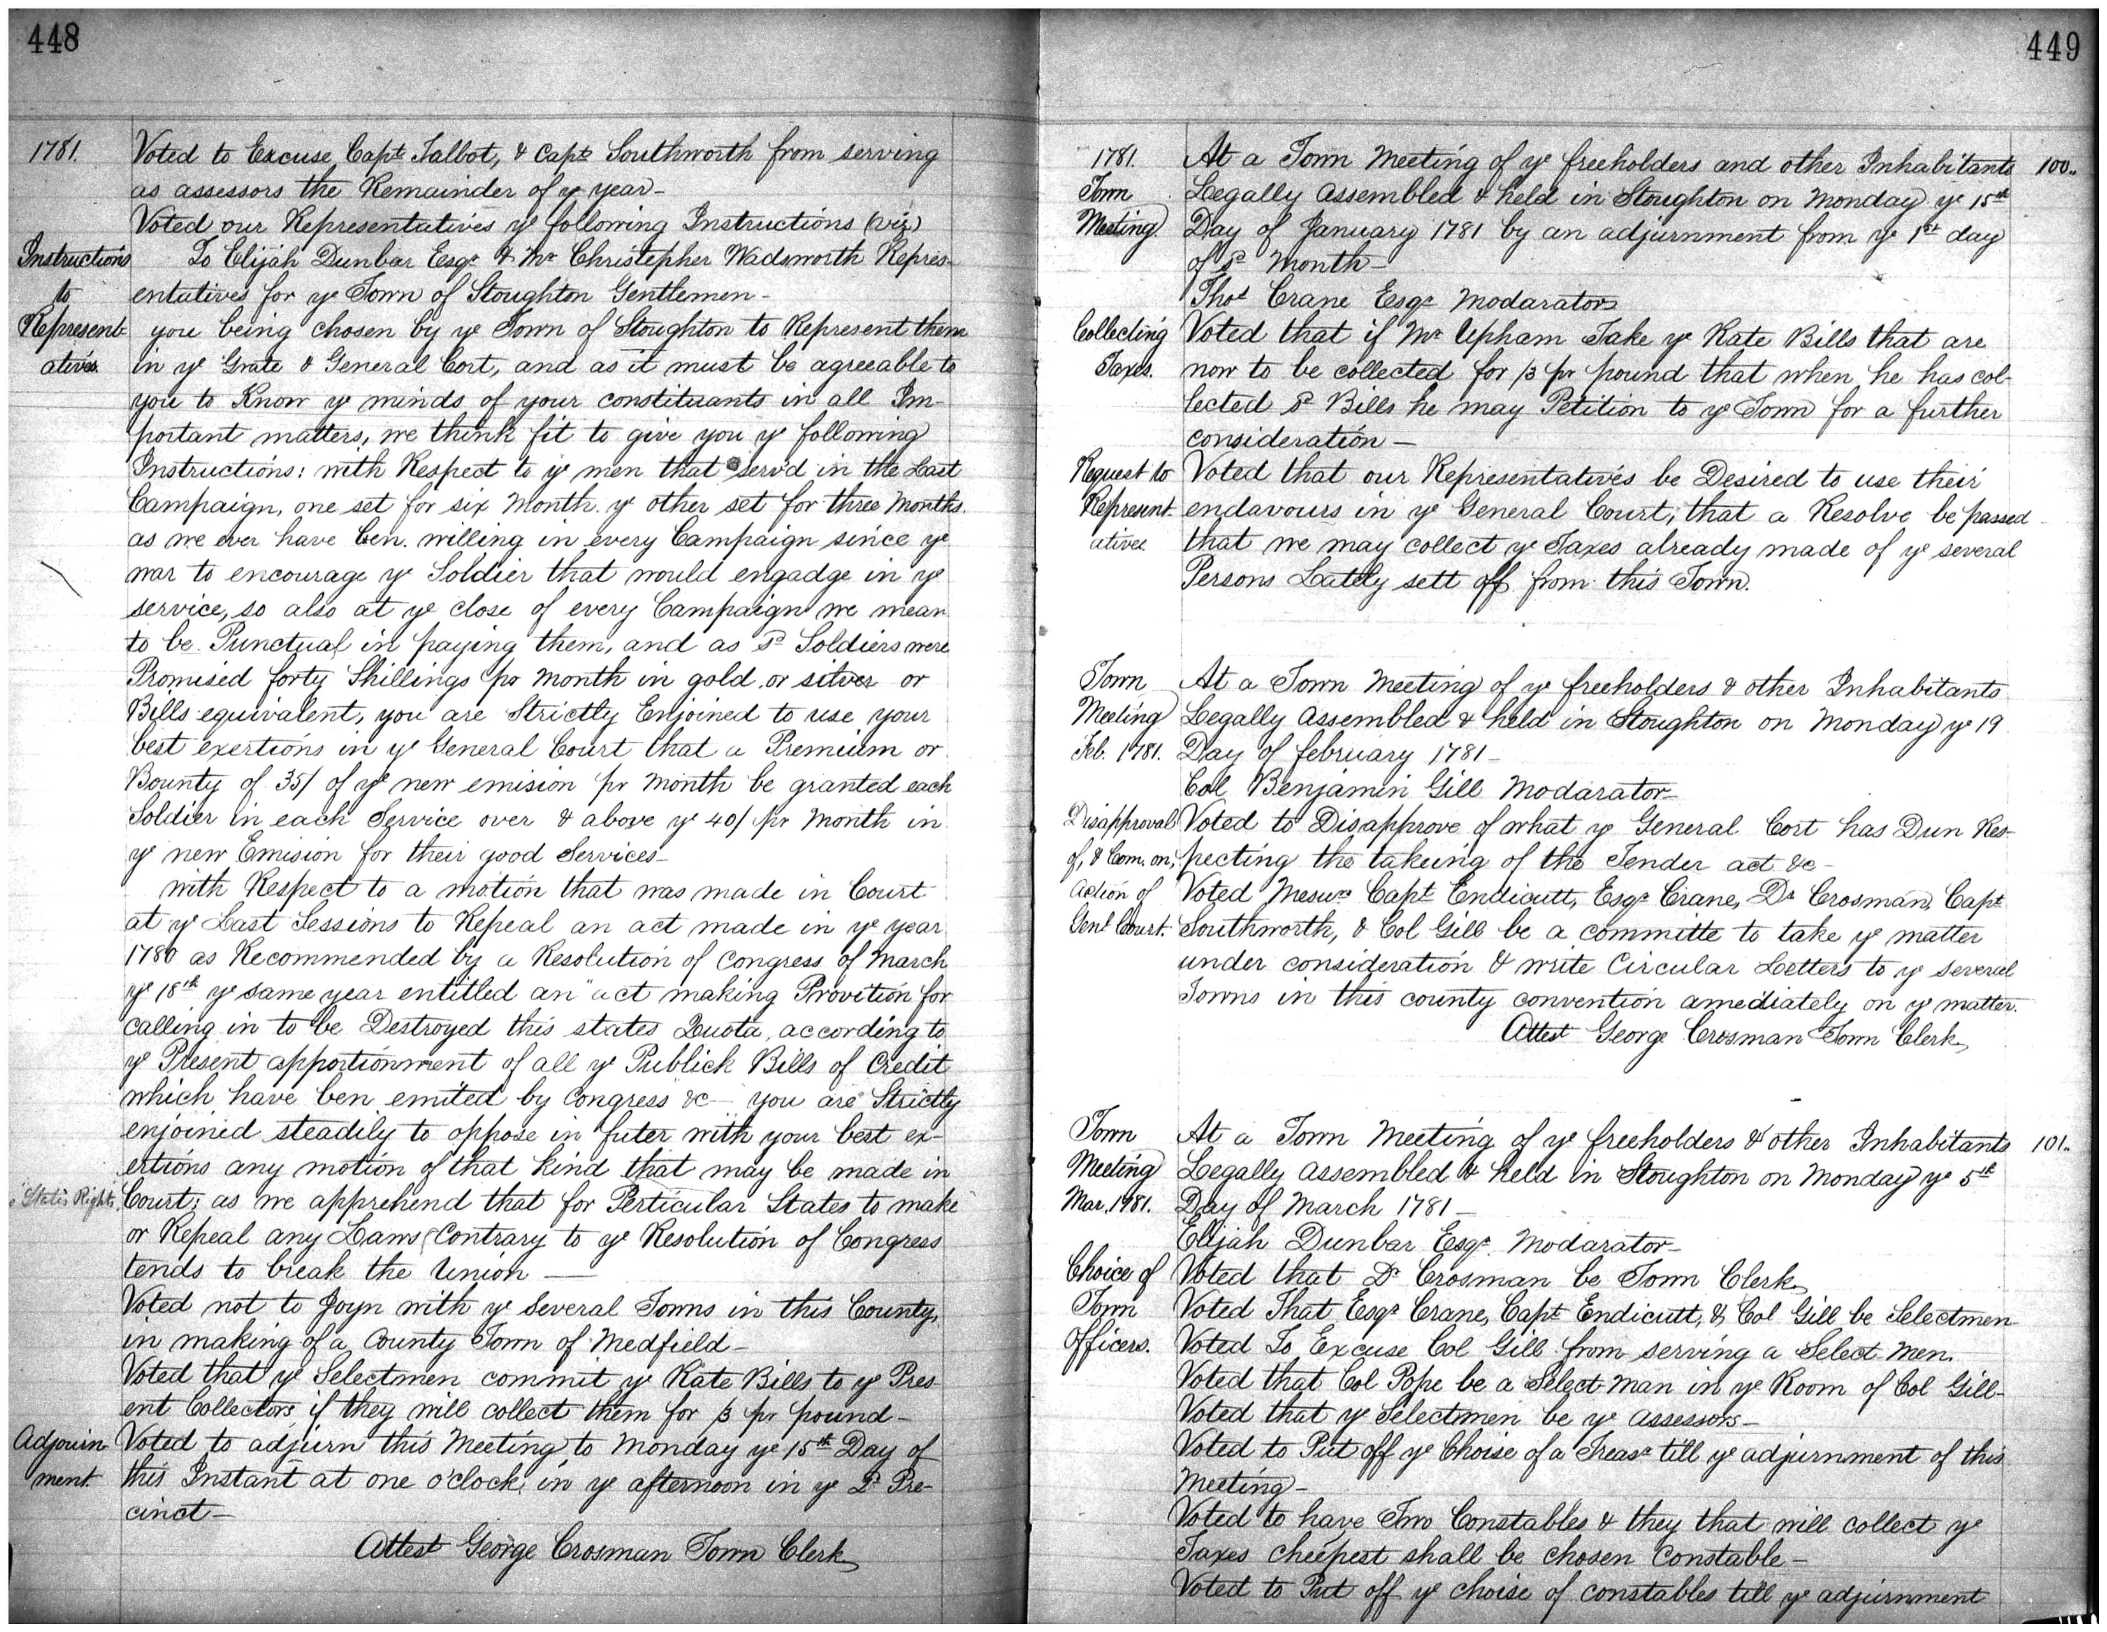 448
1781.
Voted to Excuse Capt Talbot, & Capt Southworth from serving
as assessors the Remainder of ye year-
Voted our Representatives ye following Instructions (viz)
Instructions
to
Represent-
atives.
To Elijah Dunbar Esqr & Mr Christepher Wadsworth Repres-
entatives for ye Town of Stoughton Gentlemen-
you being chosen by ye Town of Stoughton to Represent them
in ye Grate & General Cort, and as it must be agreeable to
you to Know ye minds of your constituants in all Im-
portant matters, we think fit to give you ye following
Instructions: with Respect to ye men that serv'd in the Last
Campaign, one set for six Month ye other set for three Months.
as we ever have ben willing in every Campaign since ye
war to encourage ye Soldier that would engadge in ye
service, so also at ye close of every Campaign we mean
to be Punctual in paying them, and as sd Soldiers were
Promised forty Shillings pr month in gold or silver or
Bills equivalent, you are Strictly Enjoined to use your
best exertions in ye General Court that a Premium or
Bounty of 35/ of ye new emision pr month be granted each
Soldier in each Service over & above ye 40/ pr Month in
ye new Emision for their good Services-
with Respect to a motion that was made in Court
at ye Last Sessions to Repeal an act made in ye year
1780 as Recommended by a Resolution of Congress of March
ye 18th ye same year entitled an "act making Provition for
calling in to be Destroyed this states Quota, according to
ye Present apportionment of all ye Publick Bills of Credit
which have ben emited by Congress &c- you are Strictly
enjoined steadily to oppose in futer with your best ex-
ertions any motion of that kind that may be made in
States Rights.
Court; as we apprehend that for Perticular States to make
or Repeal any Laws Contrary to ye Resolution of Congress
tends to break the Union —
Voted not to Joyn with ye several Towns in this County,
in making of a County Town of Medfield-
Voted that ye Selectmen commit ye Rate Bills to ye Pres-
ent Collectors if they will collect them for /3 pr pound-
Adjourn-
ment.
Voted to adjurn this Meeting to Monday ye 15th Day of
this Instant at one o'clock in ye afternoon in ye sd Pre-
cinct-
Attest George Crosman Town Clerk
449
1781.
Town
Meeting.
At a Town Meeting of ye freeholders and other Inhabitants
100..
Legally Assembled & held in Stoughton on Monday ye 15th
Day of January 1781 by an adjurnment from ye 1st day
of sd Month-
Thos Crane Esqr Modarator
Collecting
Taxes.
Voted that if Mr Upham Take ye Rate Bills that are
now to be collected for /3 pr pound that when he has col-
lected sd Bills he may Petition to ye Town for a further
consideration-
Request to
Represent-
atives
Voted that our Representatives be Desired to use their
endavours in ye General Court, that a Resolve be passed
that we may collect ye Taxes already made of ye several
Persons Lately sett off from this Town.
Town
Meeting
Feb. 1781.
At a Town Meeting of ye freeholders & other Inhabitants
Legally Assembled & held in Stoughton on Monday ye 19
Day of february 1781-
Col Benjamin Gill Modarator-
Disapproval
of, & Com. on,
action of
Genl Court.
Voted to Disapprove of what ye General Cort has Dun Res-
pecting the takeing of the Tender act &c-
Voted Messrs Capt Endicutt, Esqr Crane, Dr Crosman, Capt
Southworth, & Col Gill be a committe to take ye matter
under consideration & write Circular Letters to ye several
Towns in this county convention amediately on ye matter.
Attest George Crosman Town Clerk
Town
Meeting
Mar. 1781.
At a Town Meeting of ye freeholders & other Inhabitants
101..
Legally Assembled & held in Stoughton on Monday ye 5th
Day of March 1781-
Elijah Dunbar Esqr. Modarator-
Choice of
Town
Officers.
Voted that Dr Crosman be Town Clerk
Voted That Esqr Crane, Capt Endicutt, & Col Gill be Selectmen
Voted To Excuse Col Gill from serving a Select men.
Voted that Col Pope be a Select man in ye Room of Col Gill-
Voted that ye Selectmen be ye assessors-
Voted to Put off ye Choise of a Treasr till ye adjurnment of this
Meeting-
Voted to have Two Constables & they that will collect ye
Taxes cheepest shall be chosen Constable-
Voted to Put off ye choise of constables till ye adjurnment